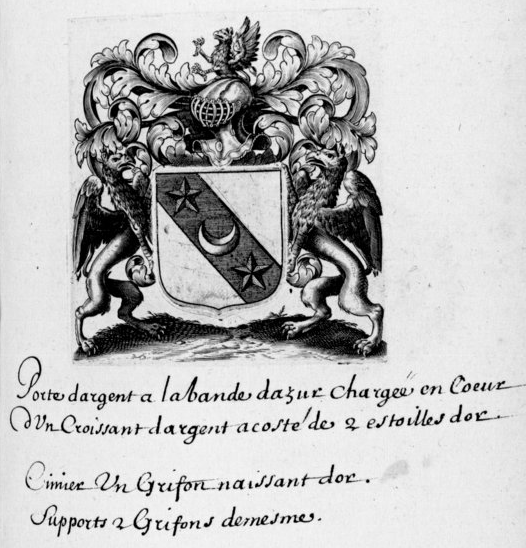 Porte dargent a la bande dazur Chargeé en Coeur
d'Un Croissant dargent acosté de 2 estoilles dor.
Cimier Un Grifon naissant dor.
Supports 2 Grifons demesme.